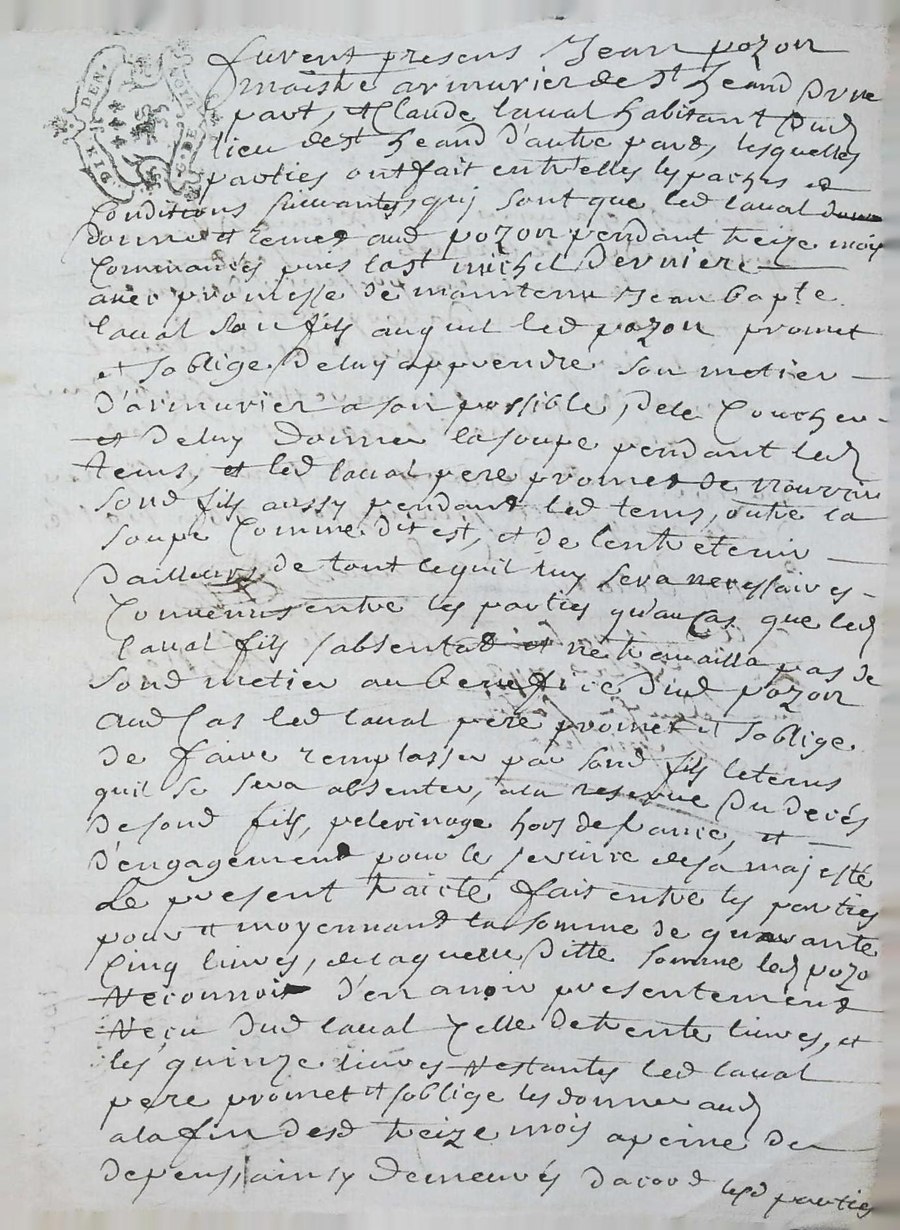 furent presens Jean pozon
maistre armurier de st heand d'une
part, et Claude laval habitant dud
lieu de st heand d'autre part, lesquelles
parties ont fait entrelles les paches et
conditions suivantes, qui sont que led laval
donne et remet aud pozon pendant treize mois
commancés puis la st michel derniere
avec promesse de maintenir Jean bapte
laval son fils auquel led pozon promet
et s'oblige de luy apprendre son metier
d'armurier a son possible, de le coucher
et de luy donner la soupe pendant led
tems, et led laval pere promet de nourrir
sond fils aussy pendant led tems, outre la
soupe comme dit est, et de l'entretenir
d'ailleurs de tout ce quil luy sera necessaires
convenus entre les parties qu'au cas que led
laval fils s'absentat et ne travailla pas de
sond metier au benefice dud pozon
aud cas led laval pere promet et s'oblige
de faire remplasser par sond fils le tems
quil se sera absenter, a la reserve du decés
de sond fils, pelerinage hors de france, et
d'engagement pour le service de sa majesté
Le present traicté fait entre les parties
pour et moyennant la somme de quarante
cinq livres, de laquelle ditte somme led pozo
reconnoit d'en avoir presentement
reçu dud laval celle de trente livres, et
les quinze livres restantes led laval
pere promet et s'oblige les donner aud
a la fin desd treize mois a peine de
depens, ainsy demeurés d'acord lesd parties